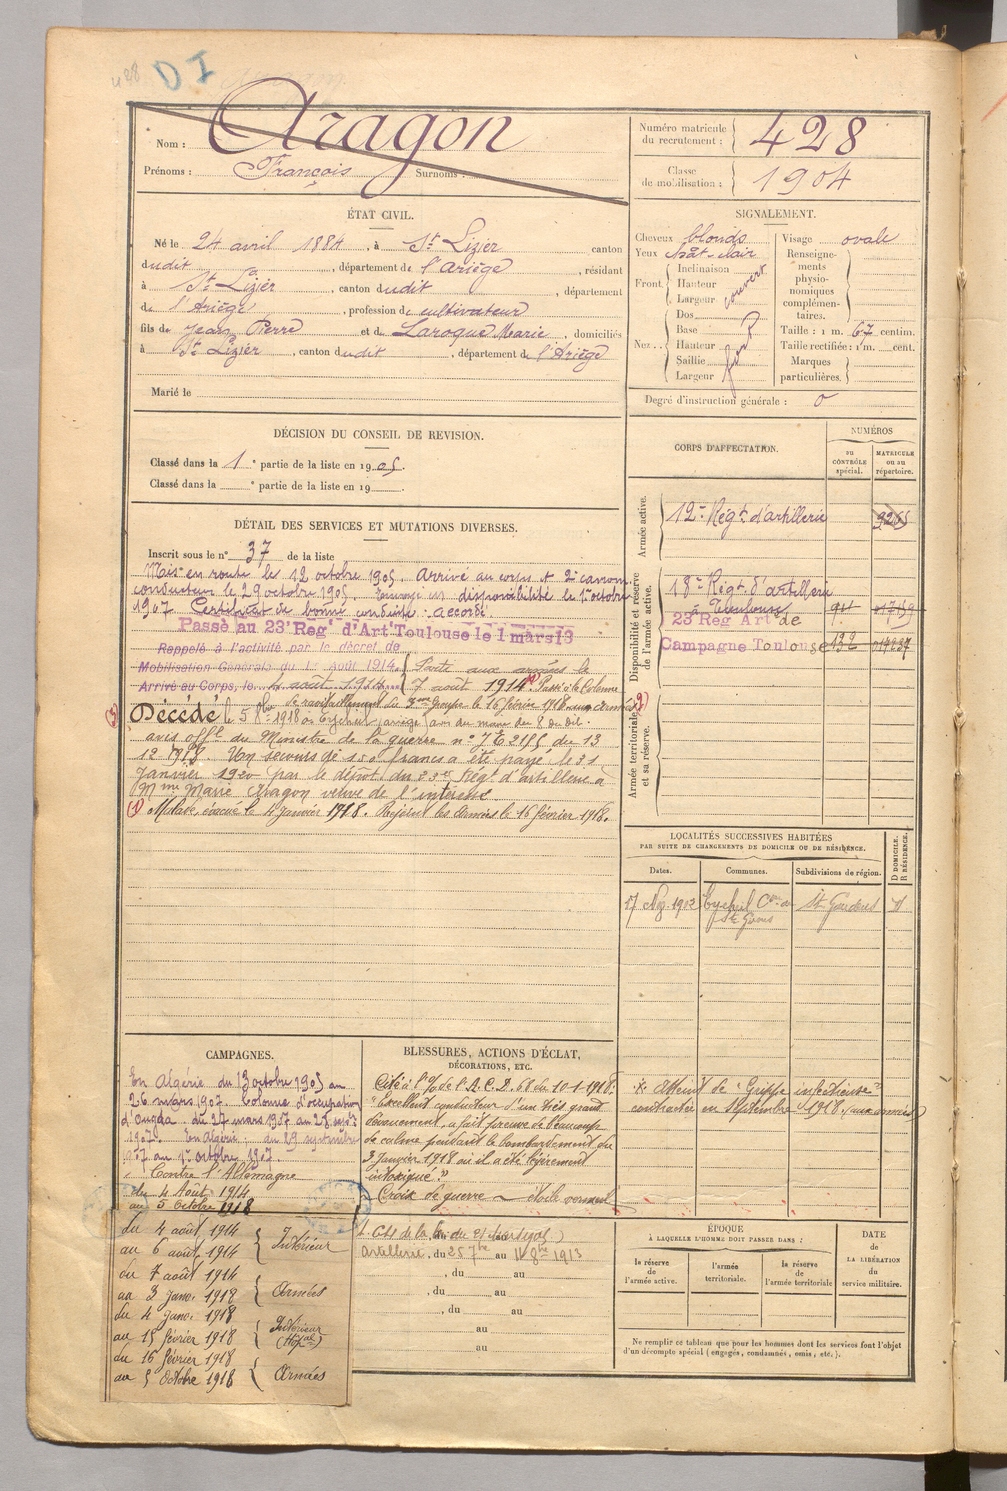 428
D I
Nom : Aragon
Prénoms : François Surnoms :
Numéro matricule du recrutement : 428
Classe de mobilisation : 1904
ÉTAT CIVIL.
Né le 24 avril 1884, à St Lizier canton
dudit, département de l'Ariège, résidant
à St Lizier, canton dudit, département
de l'Ariège, profession de cultivateur
fils de Jean Pierre et de Laroque Marie, domiciliés
à St Lizier, canton dudit, département de l'Ariège
Marié le
SIGNALEMENT.
Cheveux blonds
Yeux chât. clair
Front. Inclinaison
Hauteur
Largeur
couvert
Nez. Dos
Base
Hauteur
Saillie
Largeur
fort
Visage ovale
Renseignements physionomiques complémentaires.
Taille : 1 m. 67 centim.
Taille rectifiée : 1 m. cent.
Marques particulières.
Degré d'instruction générale : 0
DÉCISION DU CONSEIL DE REVISION.
Classé dans la 1e partie de la liste en 1905.
Classé dans la e partie de la liste en 19
DÉTAIL DES SERVICES ET MUTATIONS DIVERSES.
Inscrit sous le n° 37 de la liste
Mis en route le 12 octobre 1905. Arrivé au corps et 2e canon.
conducteur le 29 octobre 1905. Envoyé en disponibilité le 1er octobre
1907 Certificat de bonne conduite : accordé
Passé au 23e Rég d'Art Toulouse le 1 mars 13
Rappelé à l'activité par le décret de
Mobilisation Générale du 1er août 1914.
Arrivé au Corps, le 4 août 1914
Parti aux armées le
7 août 1914 (1) Passé à la Colonne
de ravitaillement du 3me groupe le 16 février 1918 aux armées (2)
(2) Décédé le 5 8bre 1918 à Eycheil (Ariège) avis du maire du 8 du dit.
avis offel du Ministre de la guerre n° du 13
12 1918. Un secours de 150 francs a été payé le 31
Janvier 1920 par le dépôt du 23e Régt d'artillerie à
Mme Marie Aragon veuve de l'intéressé
(1) Malade, évacué le 4 janvier 1918. Rejoint les armées le 16 février 1918.
CORPS D'AFFECTATION.
NUMÉROS
au CONTRÔLE spécial.
MATRICULE ou au répertoire.
Armée active.
12e Régt d'artillerie 9265
Disponibilité et réserve de l'armée active.
18e Régt d'artillerie
à Toulouse
23 Reg Art de
Campagne Toulouse 132
Armée territoriale et sa réserve.
LOCALITÉS SUCCESSIVES HABITÉES
PAR SUITE DE CHANGEMENTS DE DOMICILE OU DE RÉSIDENCE.
Dates. Communes. Subdivisions de région. D DOMICILE. R RÉSIDENCE.
17 1912 Eycheil Con de St Girons St Gaudens
CAMPAGNES.
En Algérie du 13 octobre 1905 au
26 mars 1907. Colonne d'occupation
d'Oudjda du 27 mars 1907 au 28 septbre
1907. En Algérie : du 29 septembre
1907 au 1er octobre 1907.
Contre l'Allemagne
du 4 Août 1914
au 5 Octobre 1918
du 4 août 1914
au 6 août 1914 Intérieur
du 7 août 1914
au 3 janv. 1918 Armées
du 4 janv. 1918
au 15 février 1918 Intérieur (Hopal)
du 16 février 1918
au 5 Octobre 1918 Armées
BLESSURES, ACTIONS D'ÉCLAT,
DÉCORATIONS, ETC.
Cité à l'O/ de l'A. C. D. 68 du 10-1-1918 :
"Excellent conducteur d'un très grand
dévouement, a fait preuve de beaucoup
de calme pendant le bombardement du
3 Janvier 1918 où il a été légèrement
intoxiqué."
Croix de guerre – étoile vermeil
* Atteint de "Grippe infectieuse"
contractée en Septembre 1918 (aux armées)
artillerie, du 25 7bre au 11 8bre 1913
, du au
, du au
, du au
au
au
ÉPOQUE
À LAQUELLE L'HOMME DOIT PASSER DANS :
la réserve de l'armée active.
l'armée territoriale.
la réserve de l'armée territoriale
DATE
DE LA LIBÉRATION
du
service militaire.
Ne remplir ce tableau que pour les hommes dont les services font l'objet
d'un décompte spécial (engagés, condamnés, omis, etc.).